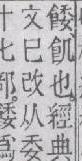 餧飢也經典
文巳改从委
十七部餧爲